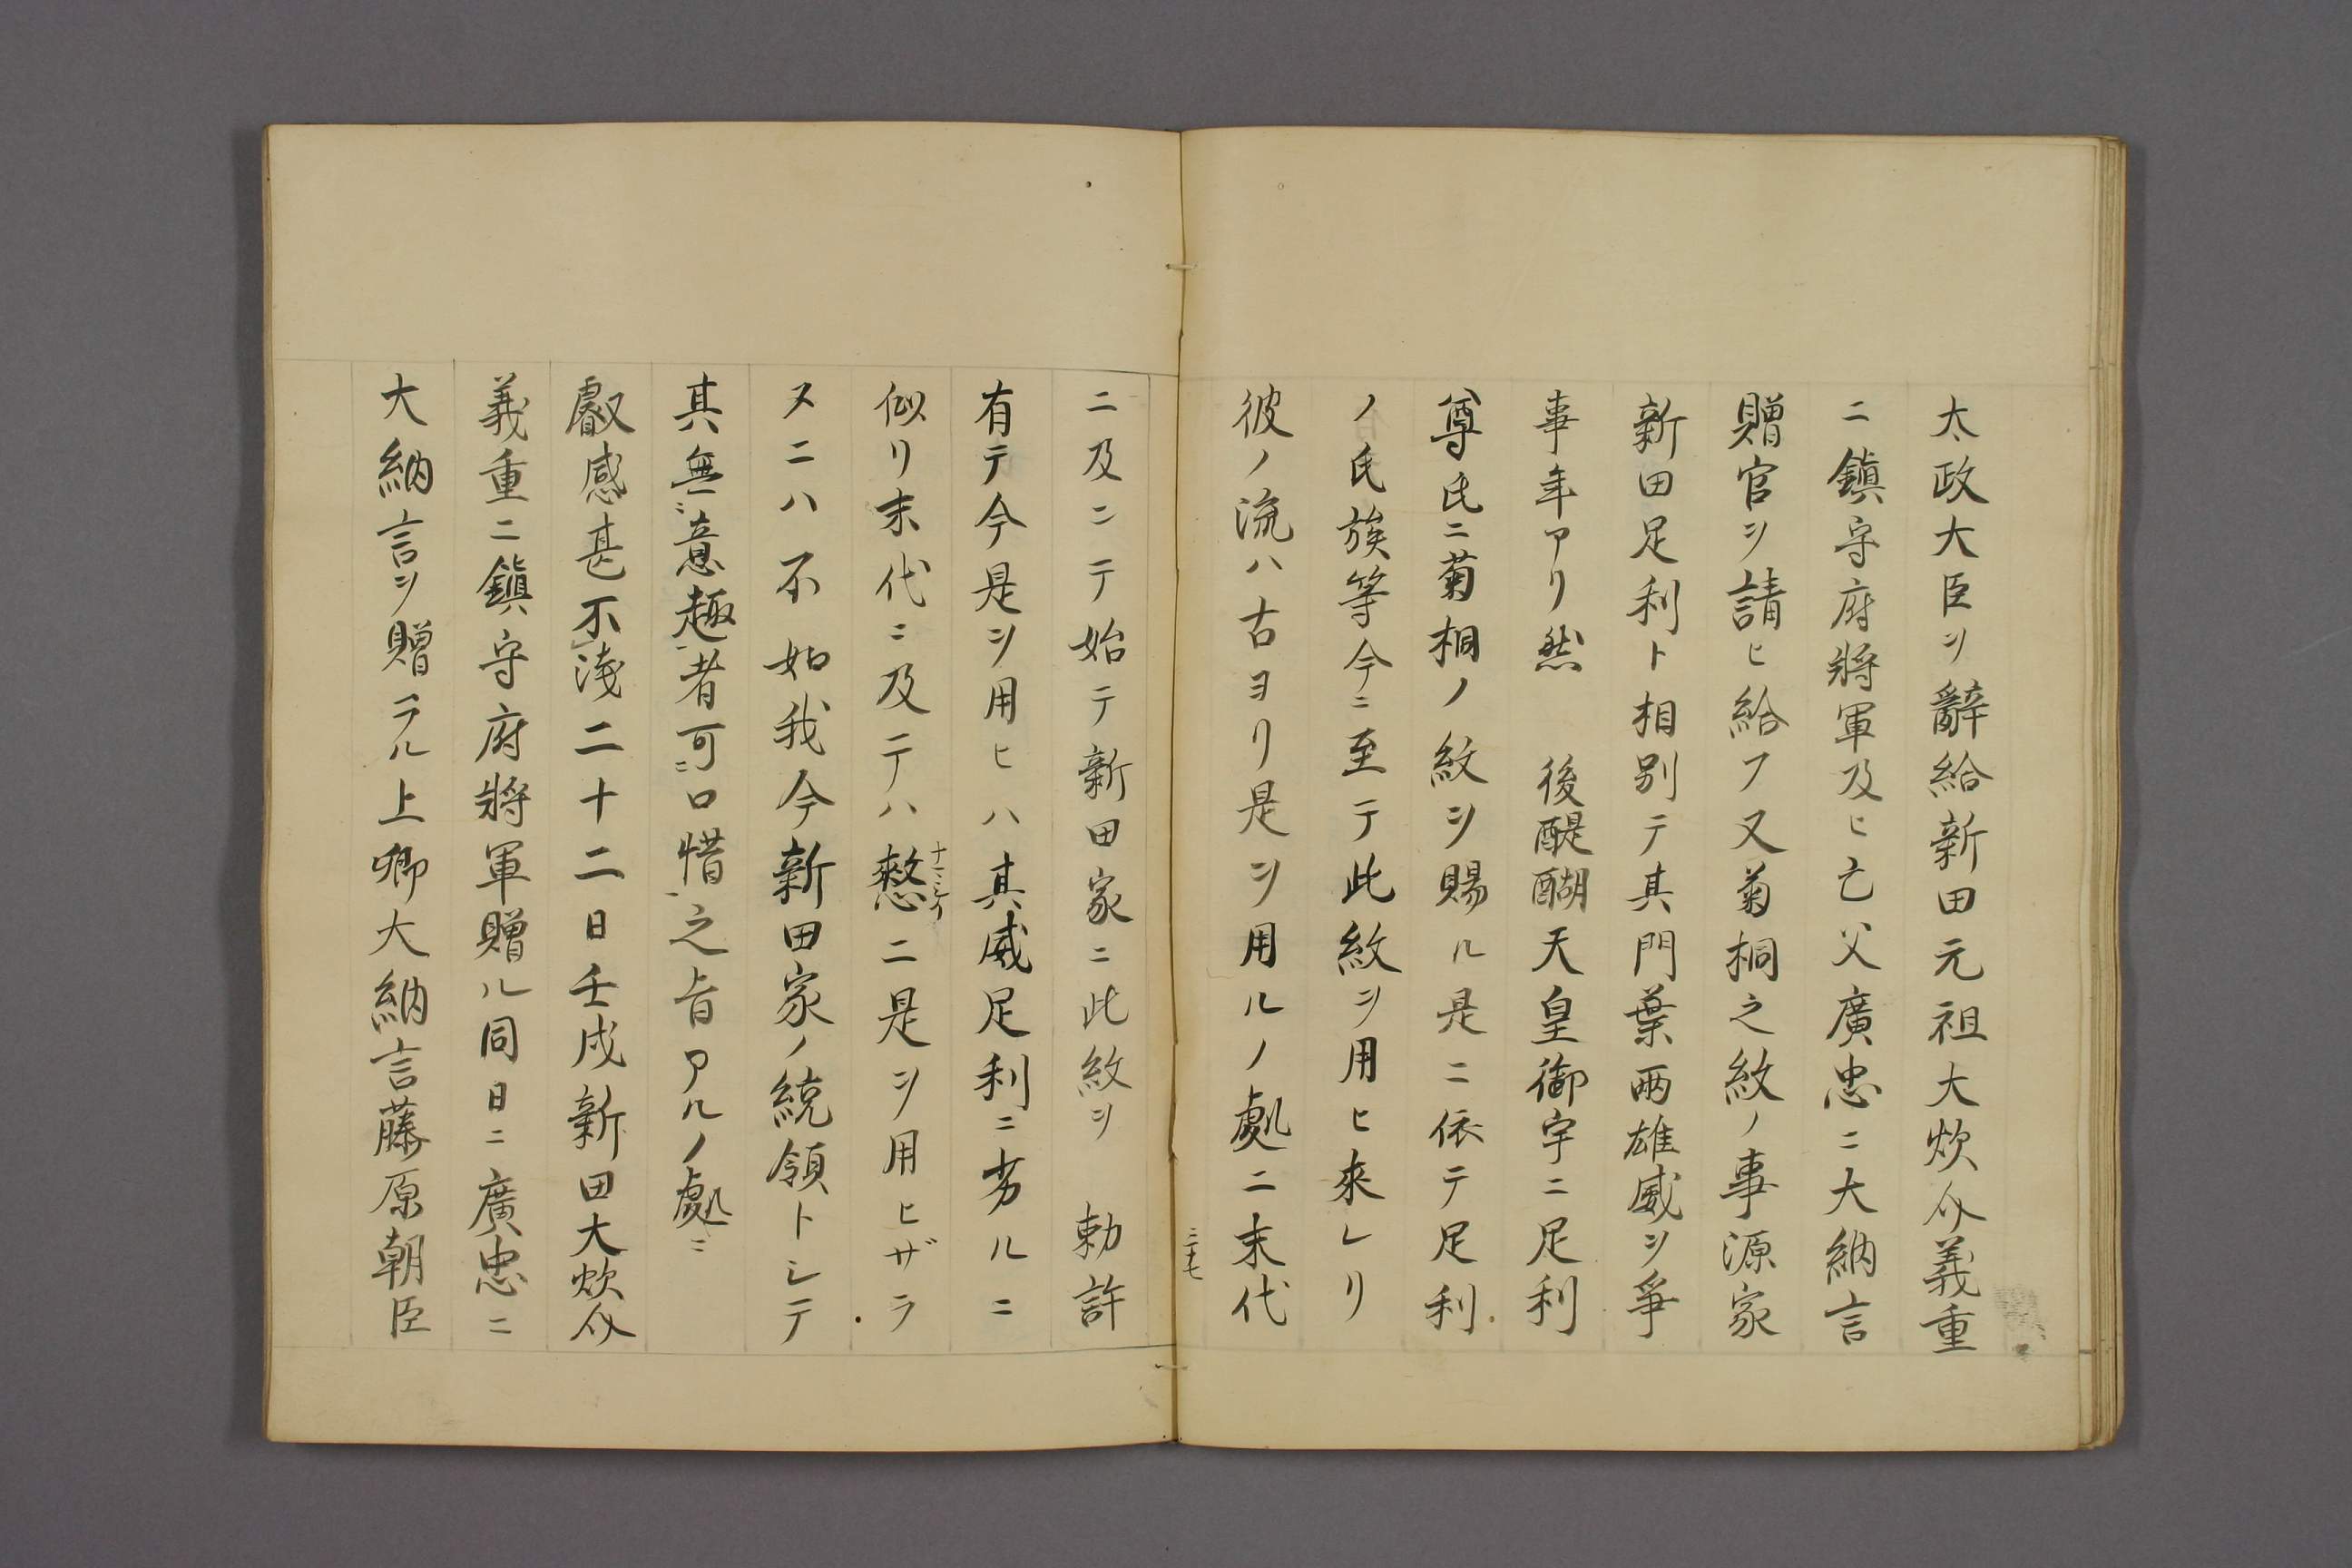 太政大臣ヲ辭給新田元祖大炊介義重
ニ鎮守府將軍及ヒ亡父廣忠ニ大納言
贈官ヲ請ヒ給フ又菊桐之紋ノ事源家
新田足利ト相別テ其門葉兩雄威ヲ爭
事年アリ然　後醍醐天皇御宇ニ足利
尊氏ニ菊桐ノ紋ヲ賜ル是ニ依テ足利
ノ氏族等今ニ至テ此紋ヲ用ヒ來レリ
彼ノ流ハ古ヨリ是ヲ用ルノ處ニ末代
ニ及ンテ始テ新田家ニ此紋ヲ　勅許
有テ今是ヲ用ヒハ其威足利ニ劣ルニ
似リ末代ニ及テハ憖ニ是ヲ用ヒザラ
ヌニハ不如我今新田家ノ統領トシテ
其無意趣者可口惜之旨アルノ處ニ
叡感甚不淺二十二日壬戌新田大炊介
義重ニ鎮守府將軍贈ル同日ニ廣忠ニ
大納言ヲ贈ラル上卿大納言藤原朝臣